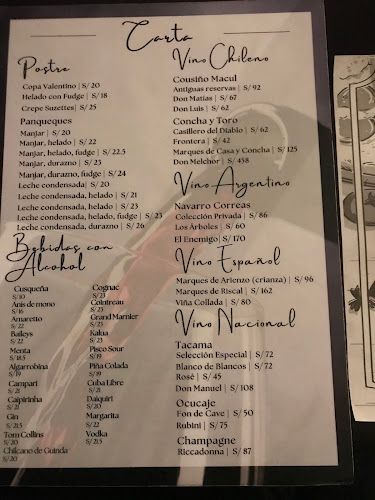 Carta
Postre
Copa Valentino | S/ 20
Helado con Fudge | S/ 18
Crepe Suzettes| S/ 25
Panqueques
Manjar | S/ 20
Manjar, helado | S/ 22
Manjar, helado, fudge | S/ 22.5
Manjar, durazno | S/ 23
Manjar, durazno, fudge | S/ 24
Leche condensada| S/ 20
Leche condensada, helado | S/ 21
Leche condensada, helado | S/ 23
Leche condensada, helado, fudge | S/ 23
Leche condensada, durazno | S/ 26
Bebidas con
Alcohol
Cusqueña
S/ 10
Anis de mono
S/ 16
Amaretto
S/ 22
Baileys
S/ 22
Menta
S/ 18.5
Algarrobina
S/ 19
Campari
S/ 21
Caipirinha
S/ 21
Gin
S/ 21.5
Tom Collins
S/ 20
Chilcano de Guinda
S/ 20
Cognac
S/ 23
Cointreau
S/ 23
Grand Marnier
S/ 23
Kalua
S/ 23
Pisco Sour
S/ 19
Piña Colada
S/ 19
Cuba Libre
S/ 21
Daiquiri
S/ 20
Margarita
S/ 22
Vodka
S/ 21.5
Vino Chileno
Cousiño Macul
Antiguas reservas | S/ 92
Don Matías | S/ 67
Don Luis | S/ 62
Concha y Toro
Casillero del Diablo | S/ 62
Frontera | S/ 42
Marques de Casa y Concha | S/ 125
Don Melchor | S/ 458
Vino Argentino
Navarro Correas
Colección Privada | S/ 86
Los Árboles | S/ 60
El Enemigo| S/ 170
Vino Español
Marques de Arienzo (crianza) | S/ 96
Marques de Riscal | S/ 162
Viña Collada | S/ 80
Vino Nacional
Tacama
Selección Especial | S/ 72
Blanco de Blancos | S/ 72
Rosé | S/ 45
Don Manuel | S/ 108
Ocucaje
Fon de Cave | S/ 50
Rubini | S/ 75
Champagne
Riccadonna | S/ 87